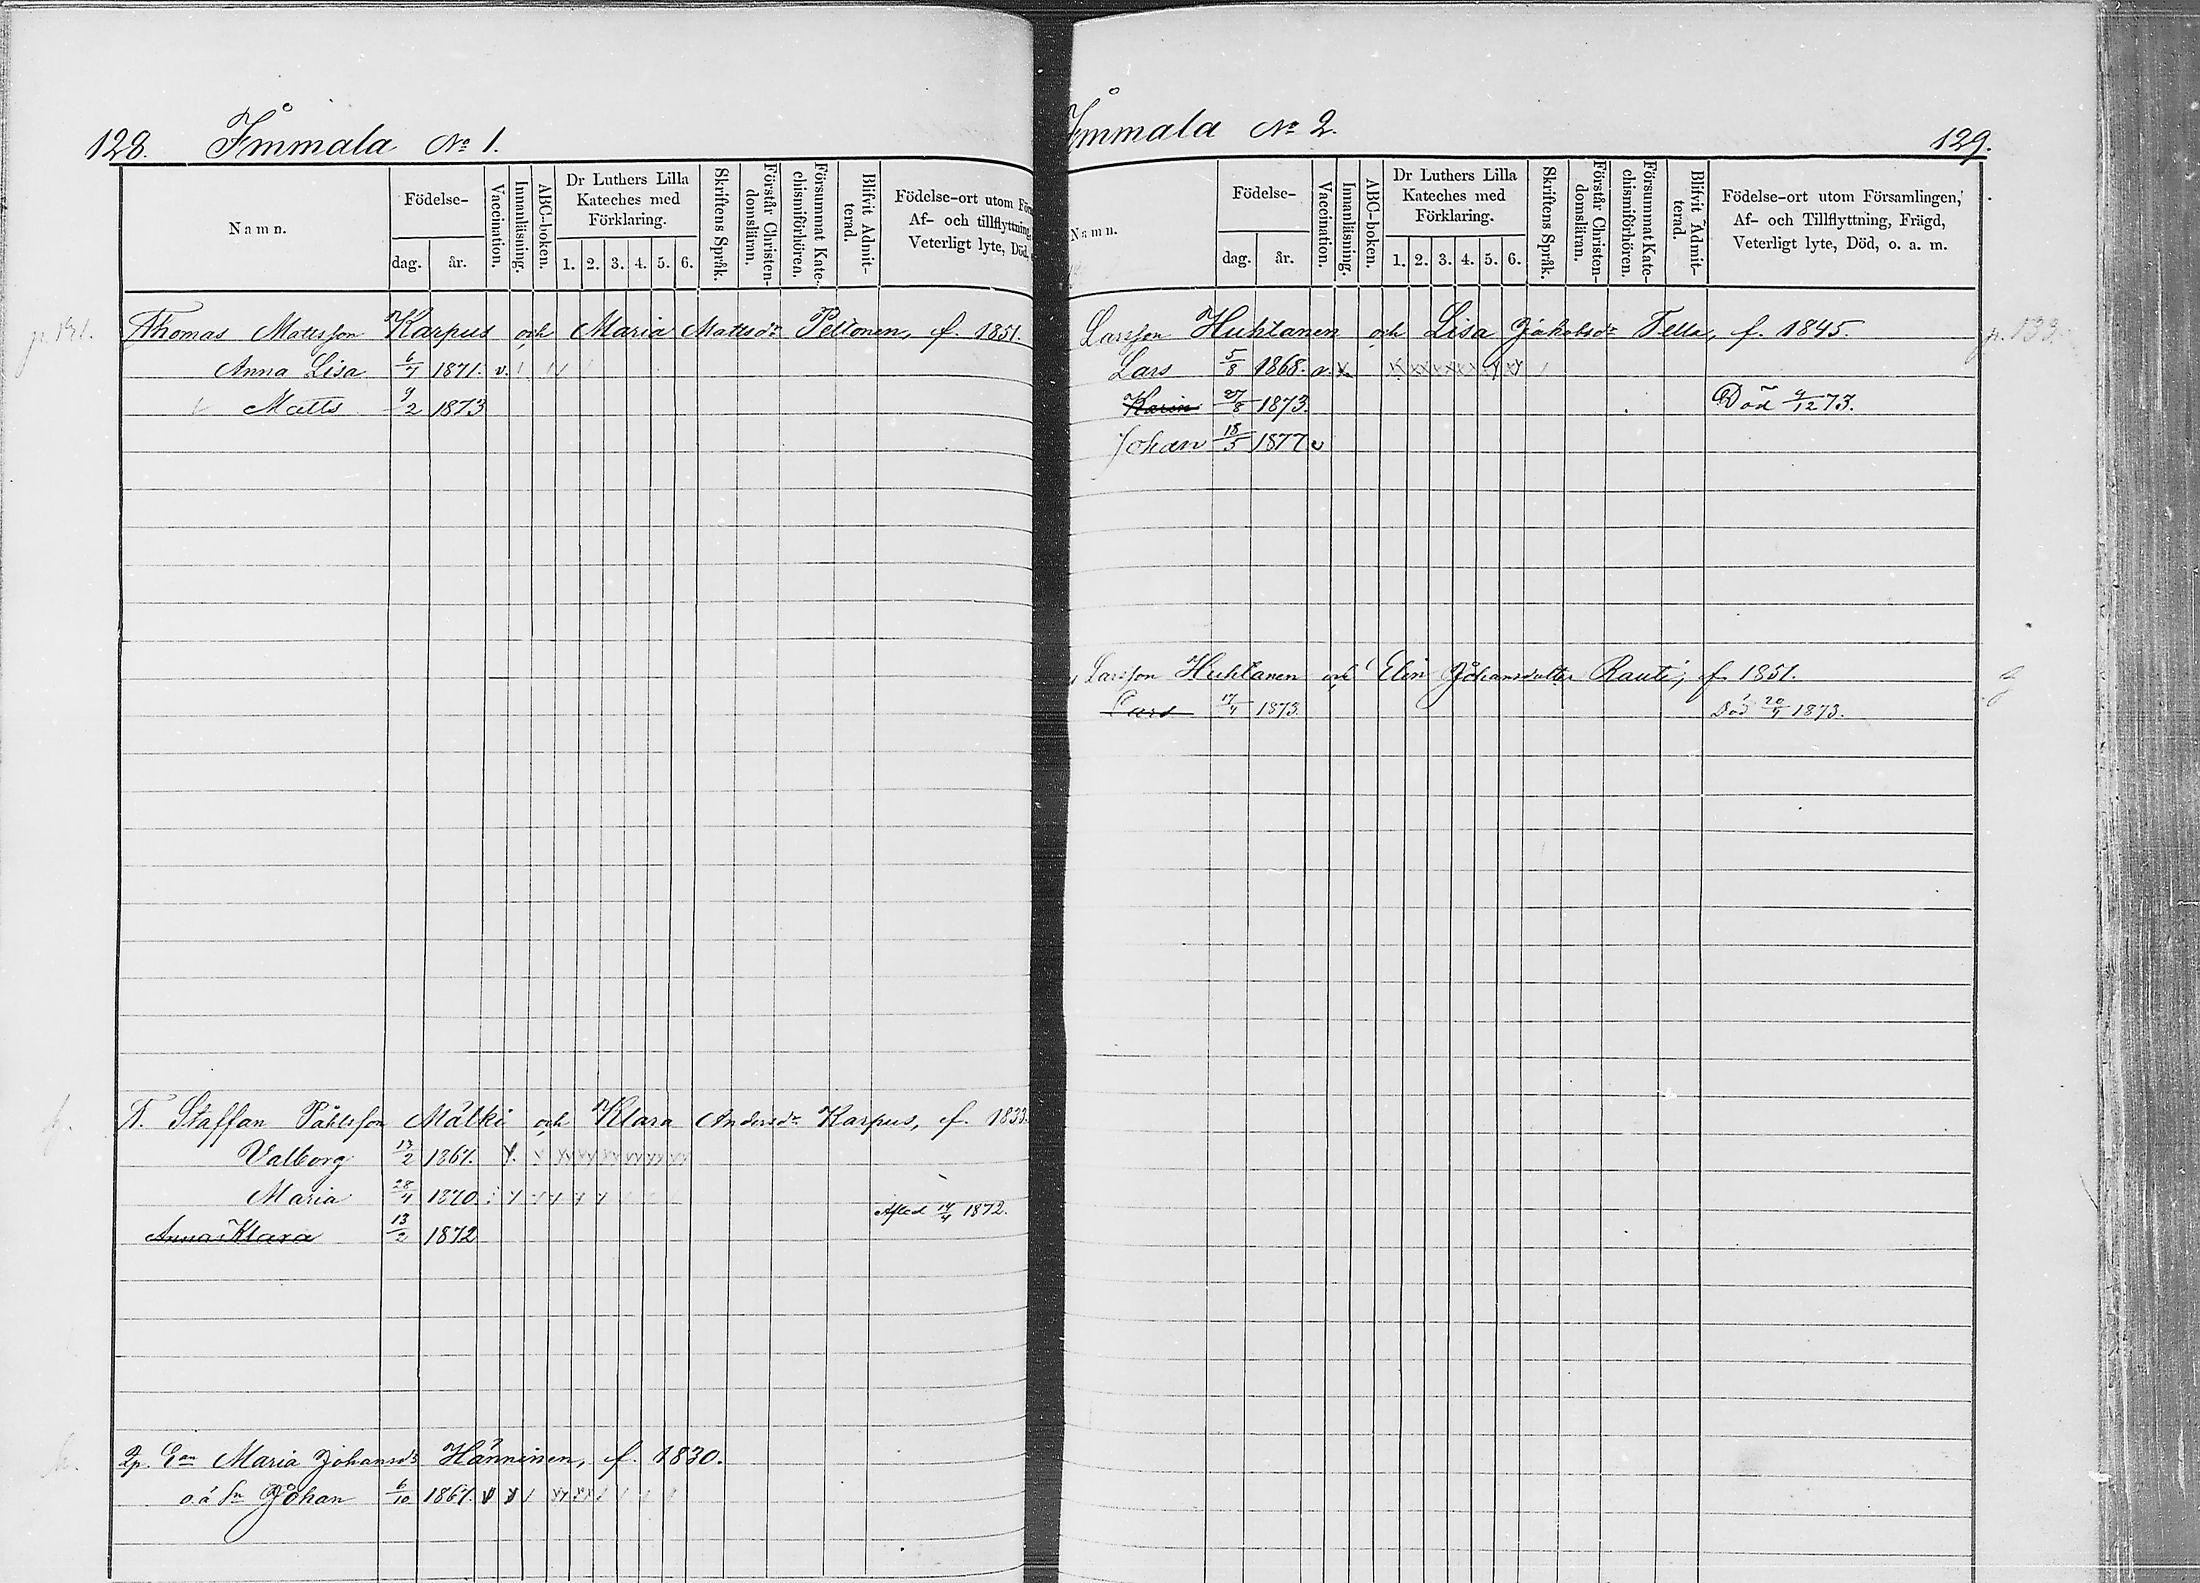 128. Immala No 1.
Namn. Födelse- dag. år. Vaccination. Innanläsning. ABC-boken. Dr Luthers Lilla Kateches med Förklaring. 1. 2. 3. 4. 5. 6. Skriftens Språk. Förstår Christen-domsläran. Försummat Kate-chismiförhören. Blifvit Admit-terad. Födelse-ort utom För
Af- och tillflyttning,
Veterligt lyte, Död,
p. 131. Thomas Mattsson Karpus och Maria Mattsdr Peltonen, f. 1851.
Anna Lisa 6/4 1871. v.
Matts 9/2 1873
T. Staffan Påhlsson Mälki och Klara Andersdr Karpus, f. 1833.
Valborg 13/2 1867.
Maria 28/4 1870.
Anna Klara 13/2 1872 Afled 14/4 1872.
Maria Johansdr Hänninen, f. 1830.
o.ä. Sn Johan 6/10 1867.
Immala No 2. 129.
Namn. Födelse- dag. år. Vaccination. Innanläsning. ABC-boken. Dr Luthers Lilla Kateches med Förklaring. 1. 2. 3. 4. 5. 6. Skriftens Språk. Förstår Christen-domsläran. Försummat Kate-chismiförhören. Blifvit Admit-terad. Födelse-ort utom Församlingen,
Af- och Tillflyttning, Frägd,
Veterligt lyte, Död, o. a. m.
Larsson Huhtanen och Lisa Jakobsdr Tella, f. 1845. p. 133.
Lars 5/8 1868. v.
Karin 27/8 1873. Död 9/12 73.
Johan 18/5 1877. v
Larsson Huhtanen och Elin Johansdotter Rauti, f. 1851.
Lars 17/4 1873. Död 20/4 1873.